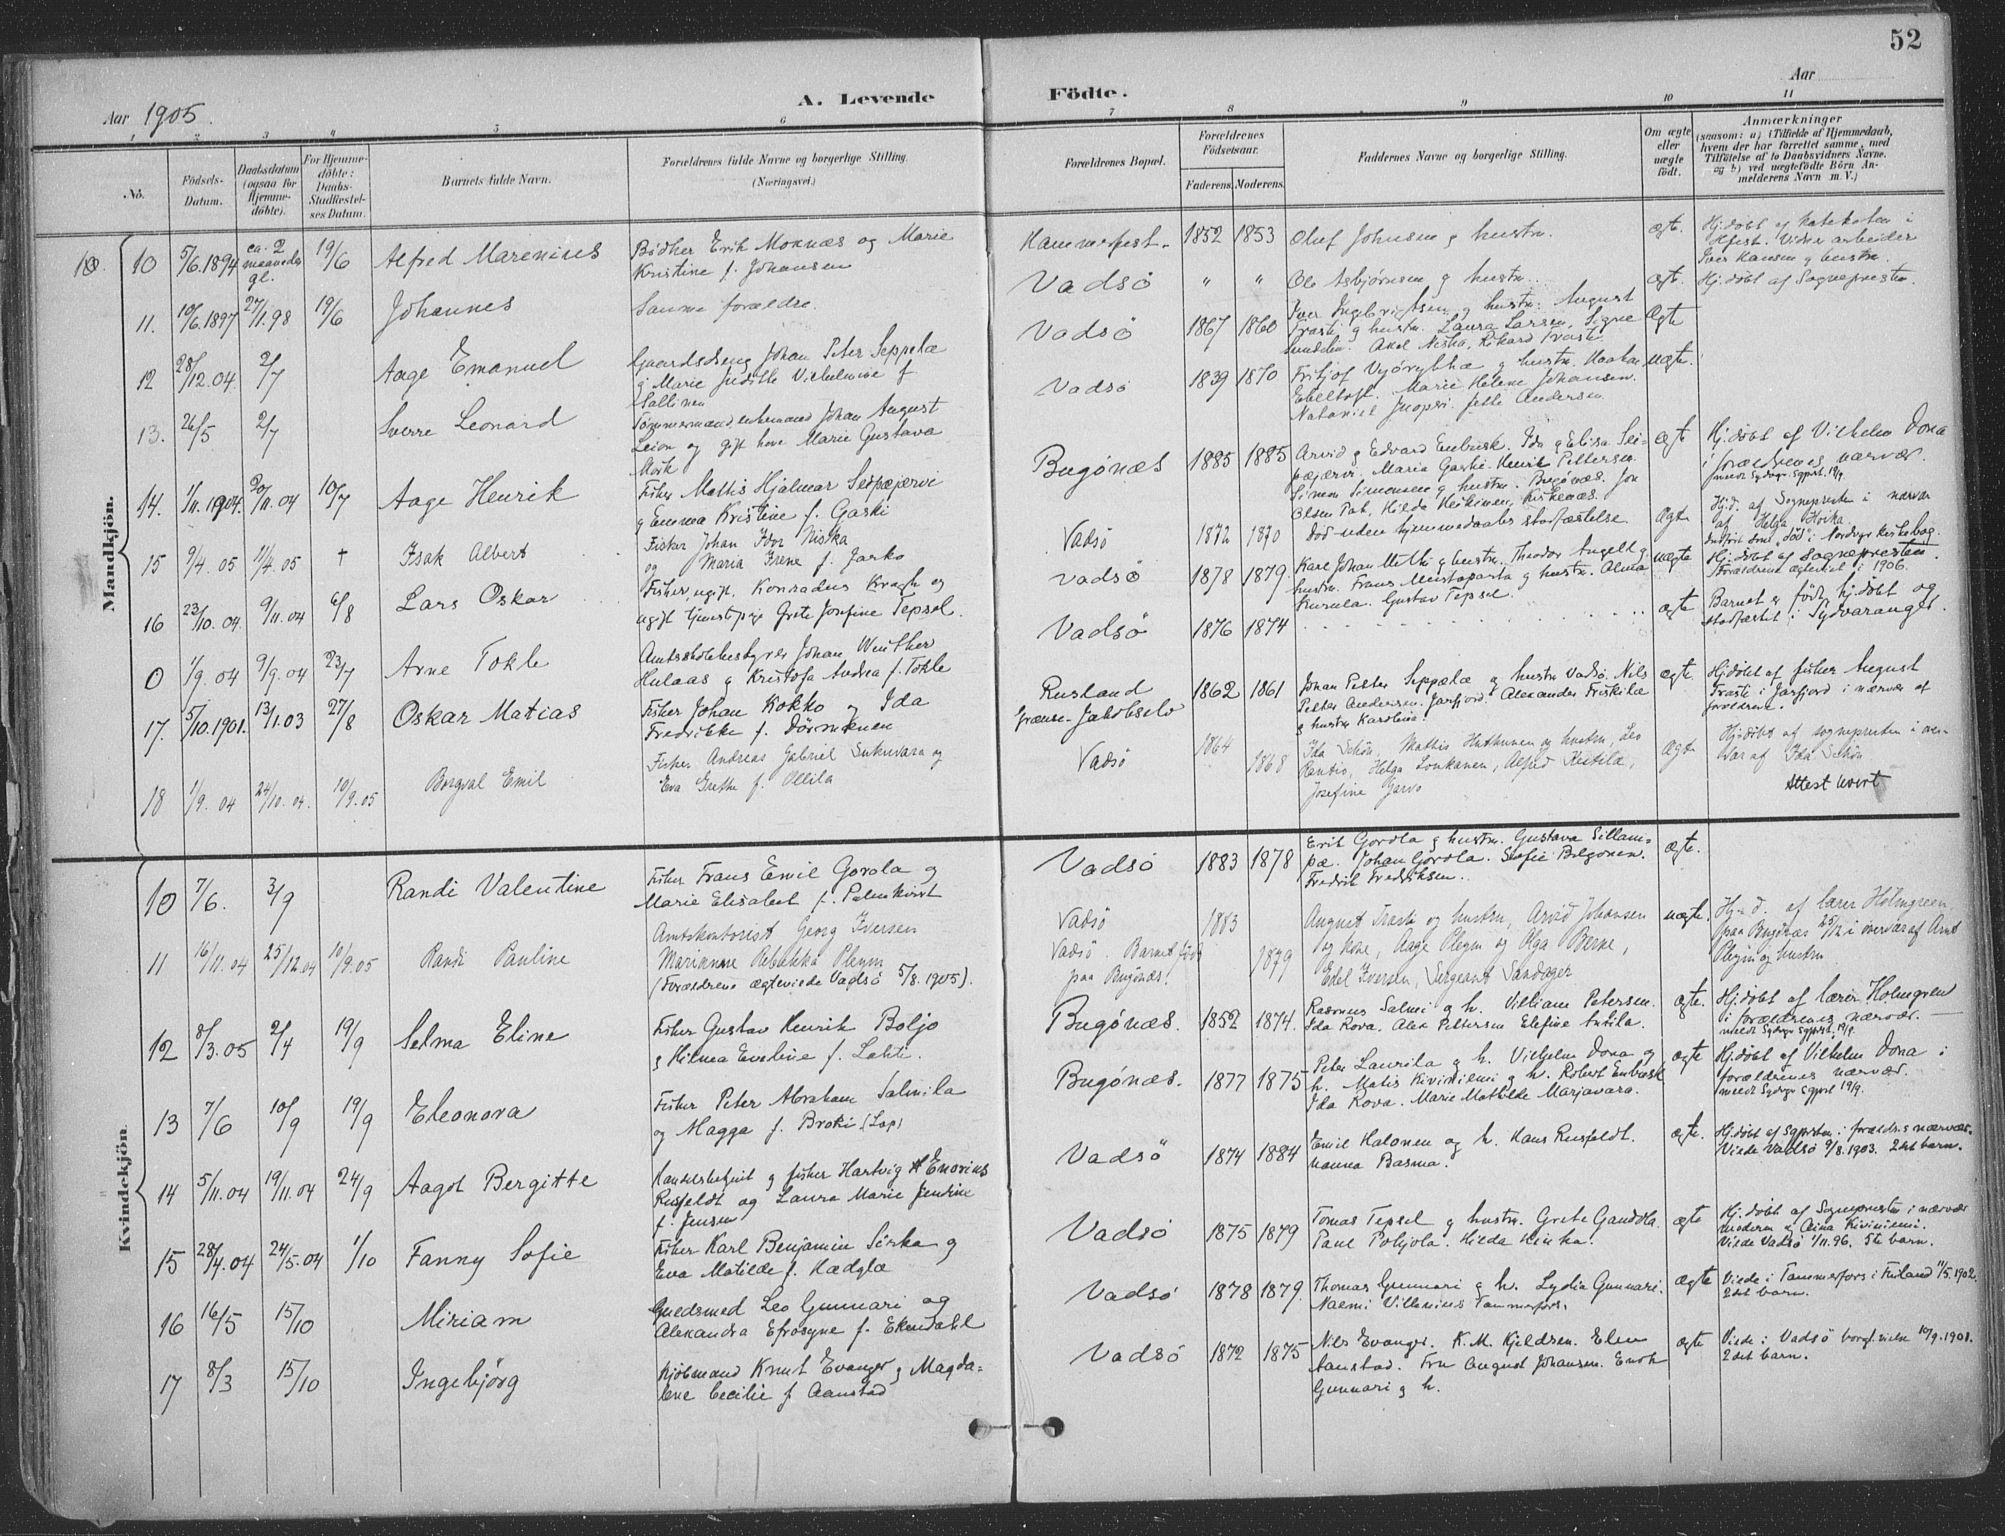 52
Aar 1905.
A. Levende
Födte.
Aar
1 2 3 4 5 6 7 8 9 10 11
No.
Födsels-Datum.
Daabsdatum (ogsaa for Hjemme-döbte).
For Hjemme-döbte: Daabs-Stadfæstel-ses Datum.
Barnets fulde Navn.
Forældrenes fulde Navne og borgerlige Stilling. (Næringsvei.)
Forældrenes Bopæl.
Forældrenes Födselsaar.
Faderens. Moderens.
Faddernes Navne og borgerlige Stilling.
Om ægte eller uægte födt.
Anmærkninger
(saasom: a) i Tilfælde af Hjemmedaab, hvem der har forrettet samme, med Tilföielse af to Daabsvidners Navne. og b) ved uægtefödte Börn An-melderens Navn m. V.)
Mandkjön.
10 5/6.1894 ca. 2 maaneder gl. 19/6 Alfred Marenius
Bödker Erik Moknæs og Marie
Kristine f. Johansen
Hammerfest. 1852 1853 Oluf Johnsen g hustr. ægt.
Hj.döbt af Katekaten i
Hfest. Vider arbeider
Iver Hansen g hustr.
11. 10/6.1897 27/1.98 19/6 Johannes
Samme forældre.
Vadsö " " Ole Asbjörnsen g hustr. ægt. Hj.döbt af Sognepresten.
12 28/12.04 2/7 Aage Emanuel
Gaardsdreng Johan Peter Seppelæ
g Marie Judith Vilhelmine f
Sallinen
Vadsö 1867 1860
Iver Ingebrigtsen g hustr. August
Trasti g hustr. Laura Larsen, Signe
Sundelin. Axel Niska, Rikard Trasti
Ægte
13. 26/5 2/7 Sverre Leonard
Tömmermand, enkemand Johan August
Leion og gift kone Marie Gustava
Mörk
Vadsö 1839 1870
Fritjof Vyöryhkæ g hustr. Haakon
Ebeltoft. Marie Helene Johansen.
Nataniel Juopperi. Jette Andersen
uægte.
14. 1/11.1904. 20/11.04 10/7 Aage Henrik
Fisker Mattis Hjalmar Seipæjærvi
g Emma Kristine f. Gaski
Bugönæs 1885 1885
Arvid g Edvard Enbusk. Ida g Elisa Sei-
pæjærvi. Maria Gaski. Henrik Pettersen.
Simon Simonsen g hustr. Bugönæs. Jon
Olsen Pat, Hilda Heikinen, Kirkenæs.
ægt
Hj.döbt af Vilhelm Dona
i forældrenes nærvær.
15 9/4.05 11/4.05 + Isak Albert
Fisker Johan Ivar Niska
og Maria Irene f. Jarko
Vadsö 1872 1870 Död uden hjemmedaabs stadfæstelse Ægt
Hj.d. af Sognepresten i nærvær
af Helga Hoika.
16 23/10.04. 9/11.04 6/8 Lars Oskar
Fisker, ugift, Konradus Kragh og
ugift tjenstpige Grete Josefine Tepsel.
Vadsö 1878 1879.
Karl Johan Metti g hustr. Theodor Angelt g
hustr. Frans Mustaparta g hustr. Alma
Kurula. Gustav Tepsel
uægte
Hj.döbt af Sognepresten.
Forældrene ægteviet i 1906.
0 1/9.04 9/9.04 23/7 Arne Tokle
Amtsskolebestyrer Johan Winther
Hulaas g Kristofa Andrea f. Tokle
Vadsö 1876 1874 ægte
Barnet er födt, hj.döbt og
stadfæstet i Sydvaranger.
17. 5/10.1901. 13/1.03 27/8 Oskar Matias
Fisker Johan Kokko og Ida
Fredrikke f. Dörmænen
Rusland
Grænse-Jakobselv 1862 1861
Johan Petter Seppælæ g hustr Vadsö. Nils
Petter Andersen. Jarfjord. Alexander Friskilæ
g hustr Karoline.
ægte.
Hj.döbt af fisker August
Trasti i Jarfjord i nærvær af
forældrene.
18 1/9.04 24/10.04. 10/9.05 Borgval Emil
Fisker Andreas Gabriel Sukuvara og
Eva Grethe f. Ollila
Vadsö 1864 1868
Ida Schön, Mathis Huthunen og hustru, Leo
Rantio, Helga Loukanen, Alfred Ristilæ,
Josefine Jarvo
Ægt
Hj.döbt af sognepresten i over-
vær af Ida Schön
Attest levert
Kvindekjön.
10 7/6. 3/9 Randi Valentine
Fisker Frans Emil Gorola og
Marie Elisabet f. Palmkvist
Vadsö 1883 1878
Erik Gordla g hustr. Gustava Sillam-
pæ. Johan Gordla. Sofie Belgonen.
Fredrik Fredriksen.
ægte.
11 16/11.04 25/12.04 10/9.05 Randi Pauline
Amtskontorist Georg Iversen
Marianne Rebekka Pleym
(Forældrene ægteviede Vadsö 5/8.1905).
Vadsö
Vadsö. Barnet födt
paa Bugönæs. 1883 1879
August Trasti og hustru, Arvid Johansen
og kone, Aage Pleym og Olga Berne,
Edel Iversen, Sergeant Sandager
uægte.
Hj.d. af lærer Holmgreen
paa Bugönæs 25/12 i overvær af Arnt
Pleym og hustru
12 8/3.05 2/4 19/9 Selma Eline
Fisker Gustav Henrik Boljo
g Hilma Eveline f. Lahti.
Bugönæs. 1852 1874.
Rasmus Salmi g h. Villiam Petersen.
Ida Rova. Alex Pettersen Elefine Antila.
ægte.
Hj.döbt af lærer Holmgren
i forældrenes nærvær.
13 7/6 10/9 19/9 Eleonora
Fisker Peter Abraham Salmila
og Magga f. Broki (Lap)
Bugönæs. 1877 1875
Peter Laurila g h. Vilhjelm Dona og
h. Matis Kiviniemi g h. Robert Enbusk
Ida Rova. Marie Mathilde Marjavara.
ægte
Hj.döbt af Vilhelm Dona i
forældrenes nærvær.
14 5/11.04 19/11.04 24/9 Aagot Bergitte
Handelsbetjent g fisker Hartvig Enorius
Rusfeldt og Laura Marie Jendine
f. Jensen
Vadsö 1874 1884
Emil Halonen og h. Hans Rusfeldt.
Nanna Basma.
ægte.
Hj.döbt af Sgprstn. i forældr.s nærvær.
Viede Vadsö 9/8.1903. 2det barn.
15 28/4.04 24/5.04 1/10 Fanny Sofie
Fisker Karl Benjamin Sirka g
Eva Matilde f. Kædglæ
Vadsö 1875 1879
Tomas Tepsel g hustr. Grete Gandola
Paul Pohjola. Hilda Hinka.
ægte
Hj.döbt af Sognepresten i nærvær
moderen g Aina Kiviniemi.
Viede Vadsö 1/11.96. 5te barn.
16 16/5 15/10 Miriam
Guldsmed Leo Gunnari og
Alexandra Efrosyne f. Ekendahl
Vadsö 1878 1879.
Thomas Gunnari g h. Lydia Gunnari.
Naemi Villenius Tammerfors.
ægte
Viede i Tammerfors i Finland 11/5.1902.
2det barn.
17 8/3 15/10 Ingebjörg
Kjöbmand Knut Evanger g Magda-
lene Cecilie f. Aanstad
Vadsö 1872 1875
Nils Evanger. K.M. Kjeldsen. Elen
Aanstad. Fru August Johansen. Enok
Gunnari g h.
ægte
Viede i Vadsö borgl.vielse 10/9.1901.
2det barn.